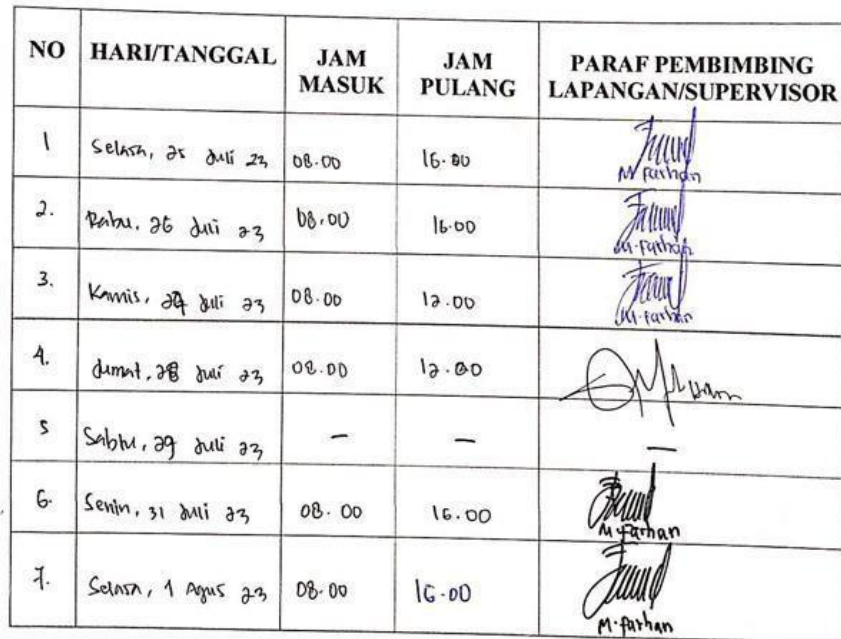 NO HARI/TANGGAL JAM MASUK JAM PULANG PARAF PEMBIMBING LAPANGAN/SUPERVISOR
1 Selasa, 25 Juli 23 08.00 16.00 M Farhan
2. Rabu, 26 Juli 23 08.00 16.00 M. Farhan
3. Kamis, 27 Juli 23 08.00 12.00 M. Farhan
4. Jumat, 28 Juli 23 08.00 12.00
5 Sabtu, 29 Juli 23 – – –
6. Senin, 31 Juli 23 08.00 16.00 M. Farhan
7. Selasa, 1 Agus 23 08.00 16.00 M. Farhan